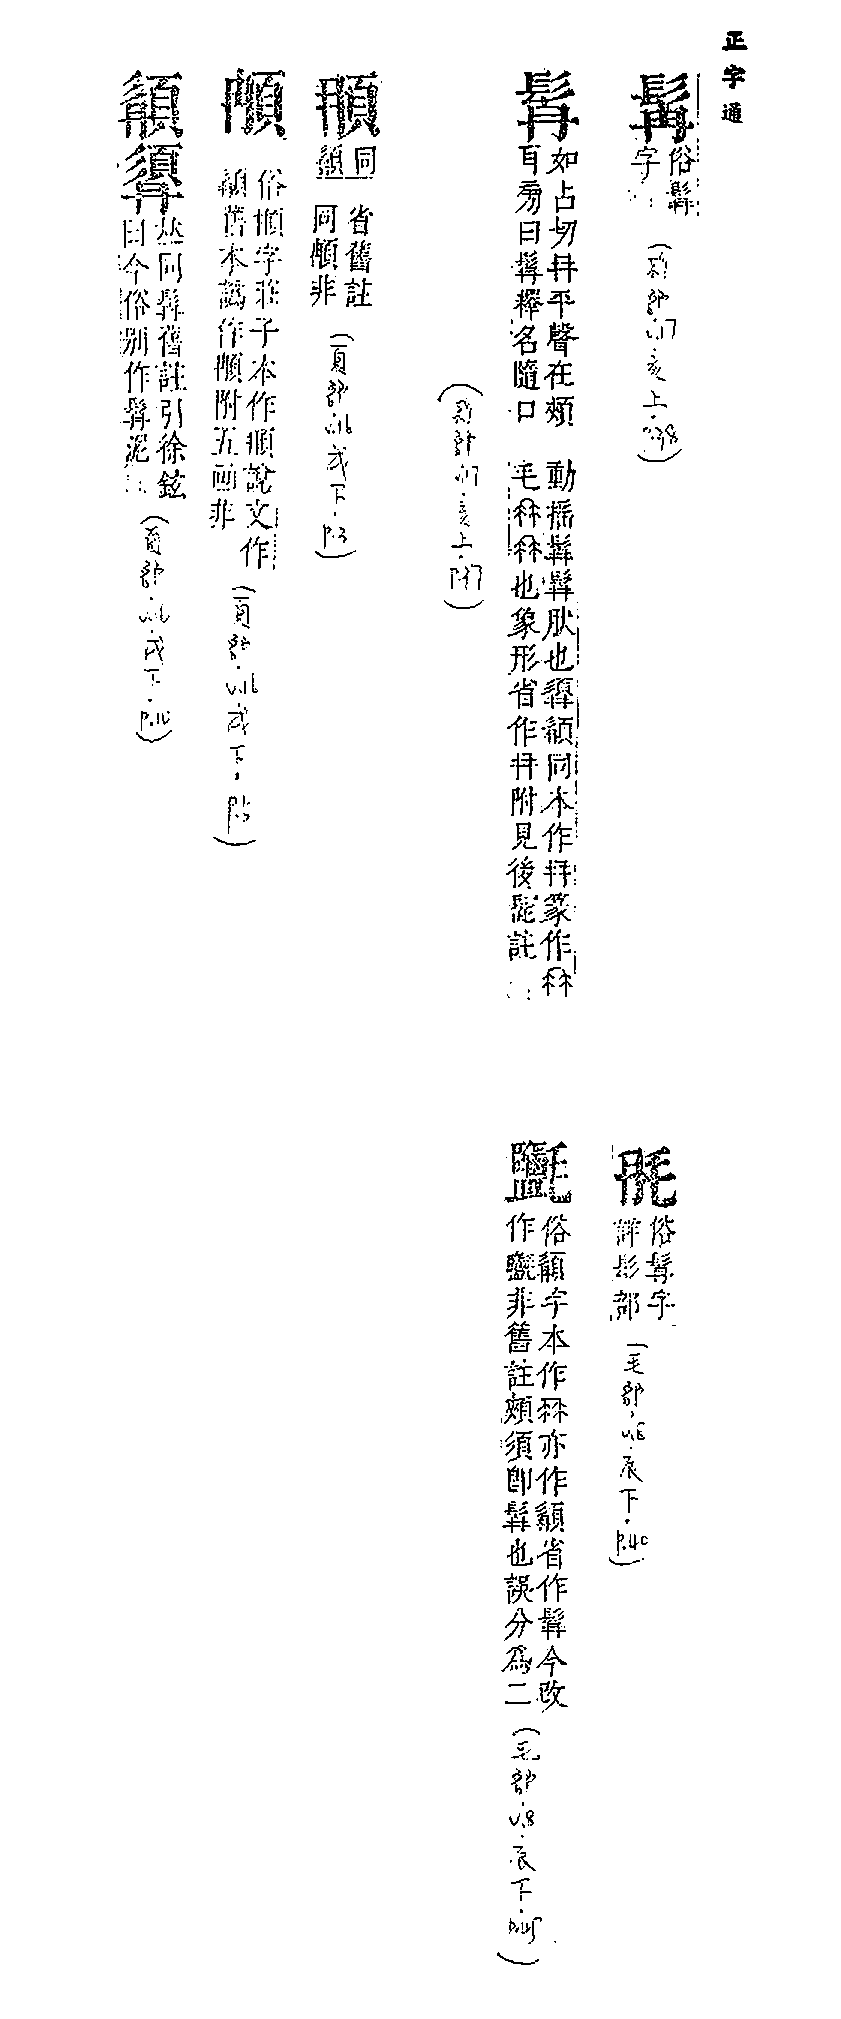 正字通
髥
俗髯
字
(髟部.v.17亥上.p.38)
髯
如占切冉平聲在頰
耳旁曰髯釋名隨口
動搖髯髯肰也䫇同本作冉篆作
毛冄冄也象形省作冉附見後髭註
(髟部.v.17.亥上.p.37)
同
省舊註
同䫇非
(頁部.v.16戌下.p.3)
俗順字莊子本作順說文作
舊本譌作附五画非
(頁部.v.16戌下.p.5)
䫇
𠀤同髯舊註引徐鉉
曰今俗别作髯泥
(頁部.v.16.戌下.p.10)
俗髯字
詳髟部
(毛部.v.8.辰下.p.40)
俗字本作冄亦作省作髯今改
作非舊註頰須卽髯也誤分爲二
(毛部.v.8.辰下.p.45)